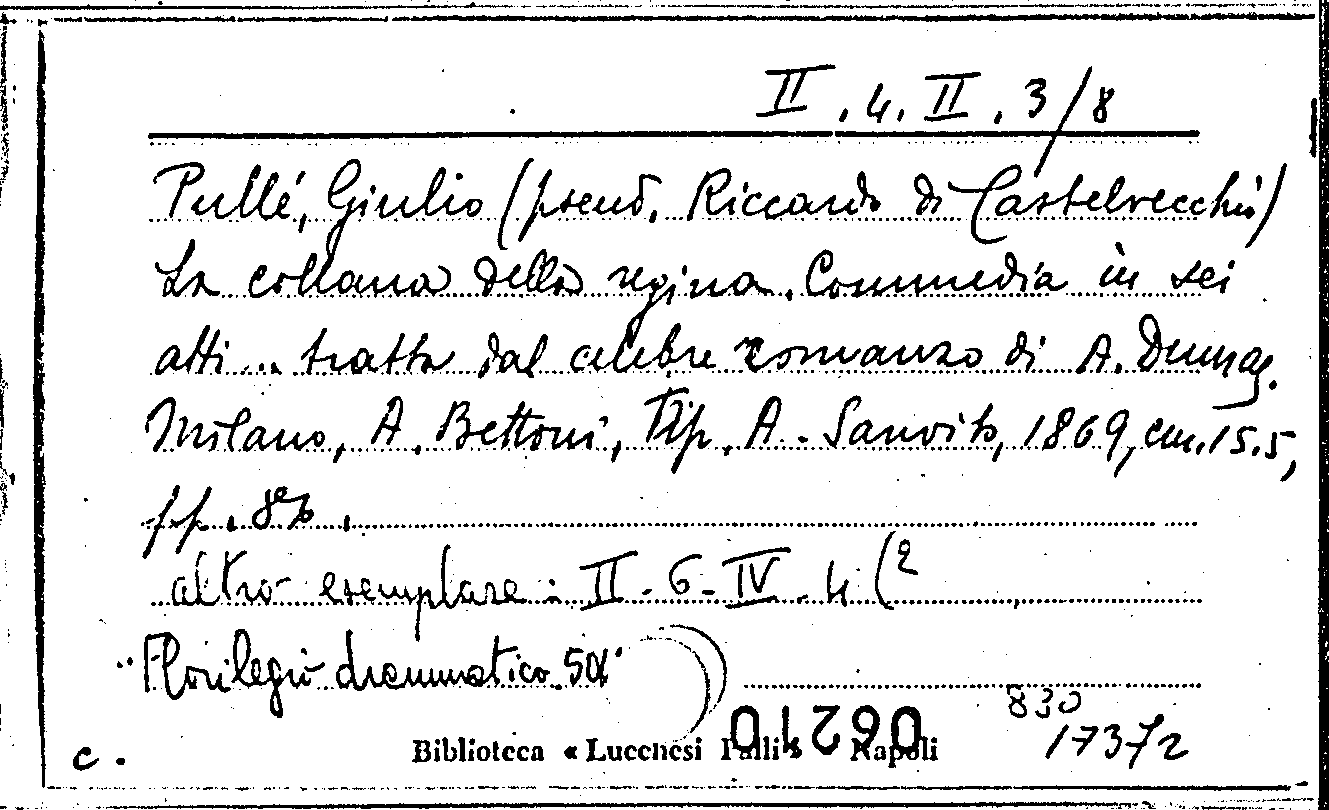 II. 4. II. 3/8
Pullé, Giulio (pseud. Riccardo di Castelvecchio)
La collana della regina. Commedia in sei
atti... tratta dal celebre romanzo di A. Dumas.
Milano, A. Bettoni, Tip. A. Sanvito, 1869, cm. 15.5,
pp.
altro esemplare: II - 6 - IV - 4 (2
"Florilegio drammatico
830
01290
17372
c.
Biblioteca « Lucchesi Palli » Napoli